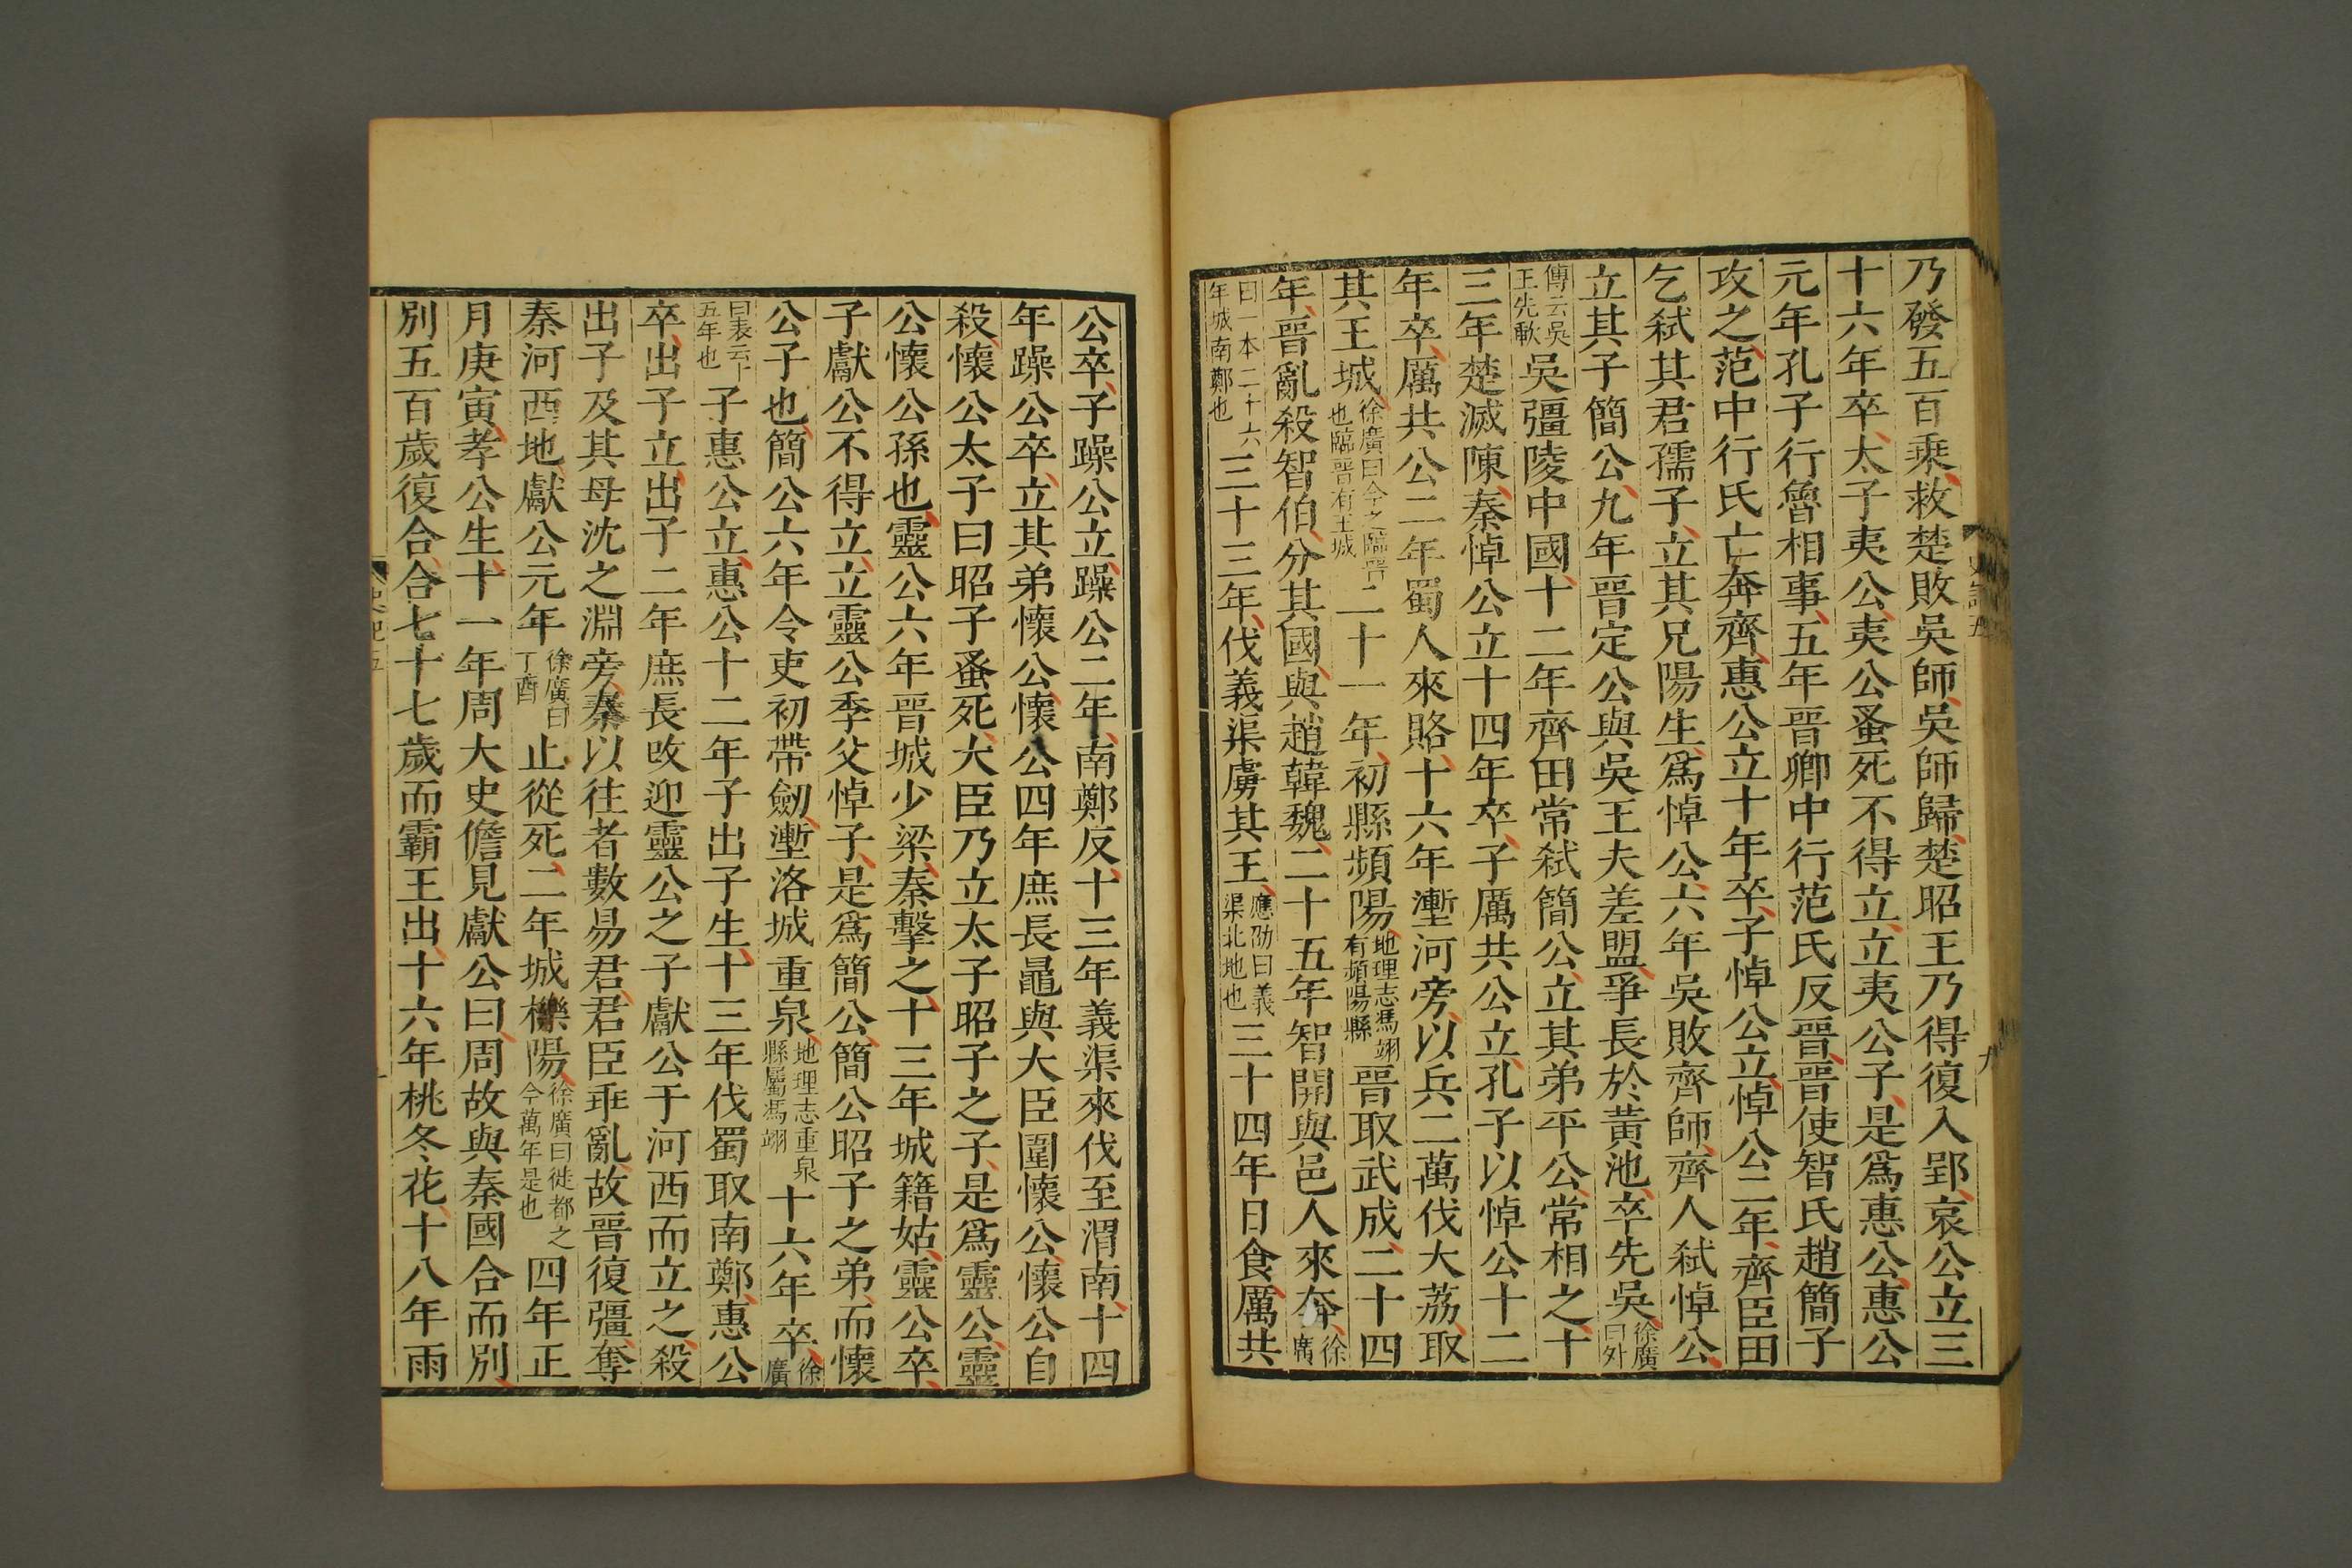 乃發五百乘救楚敗吳師吳師歸楚昭王乃得復入郢哀公立三
十六年卒太子夷公夷公蚤死不得立立夷公子是爲惠公惠公
元年孔子行魯相事五年晉卿中行范氏反晉晉使智氏趙簡子
攻之范中行氏亡奔齊惠公立十年卒子悼公立悼公二年齊臣田
乞弒其君孺子立其兄陽生爲悼公六年吳敗齊師齊人弒悼公
立其子簡公九年晉定公與吳王夫差盟爭長於黃池卒先吳徐廣曰外
傳云吳王先歃吳彊陵中國十二年齊田常弒簡公立其弟平公常相之十
三年楚滅陳秦悼公立十四年卒子厲共公立孔子以悼公十二
年卒厲共公二年蜀人來賂十六年塹河旁以兵二萬伐大荔取
其王城徐廣曰今之臨晉也臨晉有王城二十一年初縣頻陽地理志馮翊有頻陽縣晉取武成二十四
年晉亂殺智伯分其國與趙韓魏二十五年智開與邑人來奔徐廣
曰一本二十六年城南鄭也三十三年伐義渠虜其王應劭曰義渠北地也三十四年日食厲共
史記五
九
公卒子躁公立躁公二年南鄭反十三年義渠來伐至渭南十四
年躁公卒立其弟懷公懷公四年庶長鼂與大臣圍懷公懷公自
殺懷公太子曰昭子蚤死大臣乃立太子昭子之子是爲靈公靈
公懷公孫也靈公六年晉城少梁秦擊之十三年城籍姑靈公卒
子獻公不得立立靈公季父悼子是爲簡公簡公昭子之弟而懷
公子也簡公六年令吏初帶劒塹洛城重泉地理志重泉縣屬馮翊十六年卒徐廣
曰表云十五年也子惠公立惠公十二年子出子生十三年伐蜀取南鄭惠公
卒出子立出子二年庶長改迎靈公之子獻公于河西而立之殺
出子及其母沈之淵旁秦以往者數易君君臣乖亂故晉復彊奪
秦河西地獻公元年徐廣曰丁酉止從死二年城櫟陽徐廣曰徙都之今萬年是也四年正
月庚寅孝公生十一年周大史儋見獻公曰周故與秦國合而別
別五百歲復合合七十七歲而霸王出十六年桃冬花十八年雨